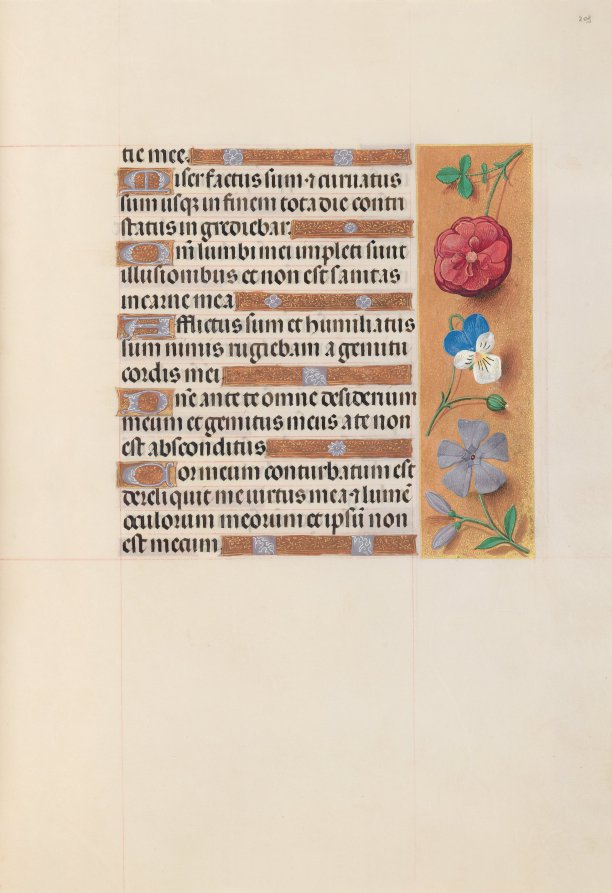 205
tie mee.
Miser factus sum ⁊ curuatus
sum usq in finem tota die contri
status in grediebar.
Qm̄ lumbi mei impleti sunt
illusionibus et non est sanitas
in carne mea
Afflictus sum et humiliatus
sum nimis rugiebam a gemitu
cordis mei
Dn̄e ante te omne desiderium
meum et gemitus meus a te non
est absconditus
Cor meum conturbatum est
dereliquit me uirtus mea ⁊ lumē
oculorum meorum et ipsū non
est mecum